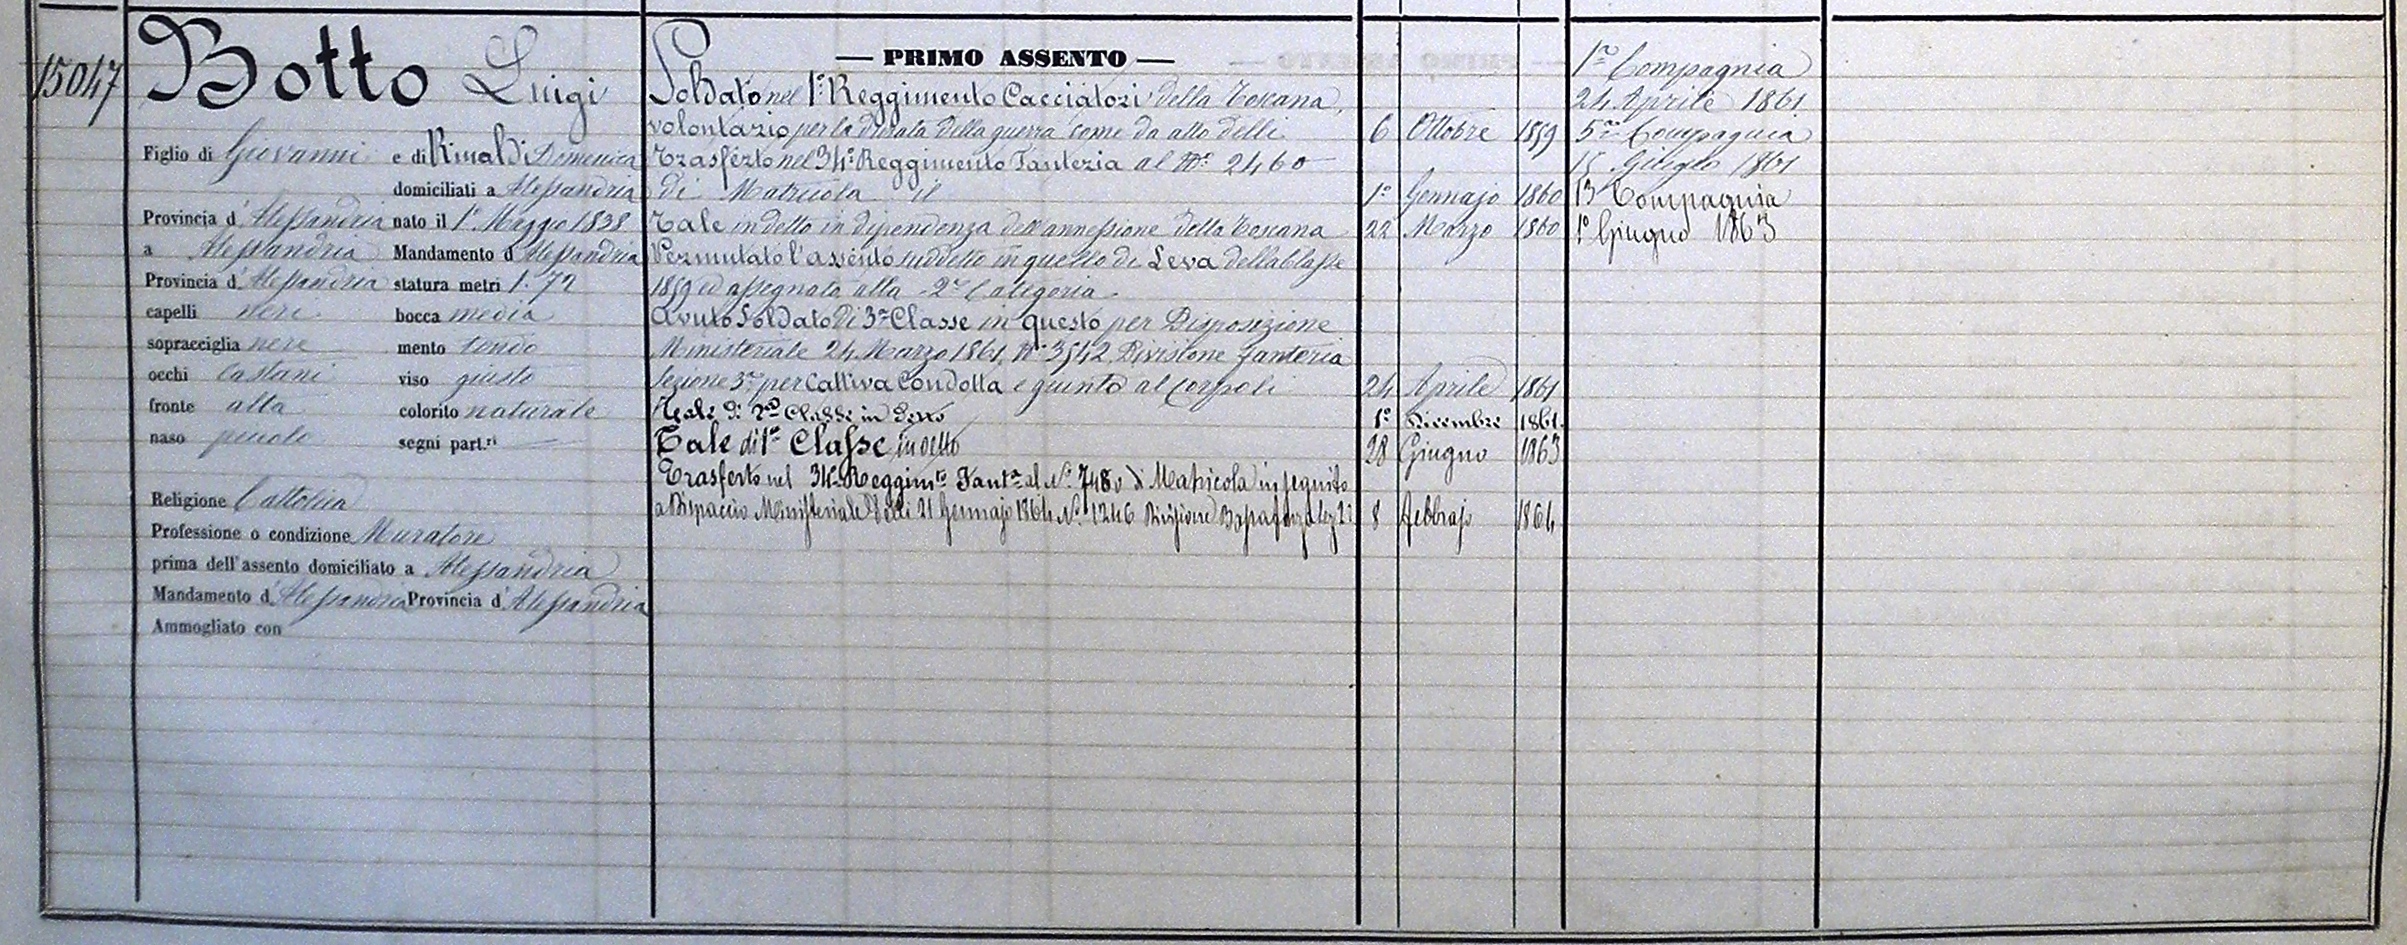 15047
Botto Luigi
Figlio di Giovanni e di Rinaldi Domenica
domiciliati a Alessandria
Provincia d'Alessandria nato il 1° Maggio 1838
a Alessandria Mandamento d'Alessandria
Provincia d'Alessandria statura metri 1.72
capelli neri bocca media
sopracciglia nere mento tondo
occhi castani viso giusto
fronte alta colorito naturale
naso piccolo segni part.ri —
Religione Cattolica
Professione o condizione Muratore
prima dell'assento domiciliato a Alessandria
Mandamento d'Alessandria Provincia d'Alessandria
Ammogliato con
— PRIMO ASSENTO —
Soldato nel 1° Reggimento Cacciatori della Toscana
volontario per la durata della guerra come da atto delli 6 Ottobre 1859
Trasferto nel 34° Reggimento Fanteria al N° 2460
di Matricola il 1° Gennajo 1860
Tale in detto in dipendenza dell'annessione della Toscana 22 Marzo 1860
Permutato l'assento suddetto in quello di Leva della Classe
1859 ed assegnato alla 2a Categoria
Avuto Soldato di 3a Classe in questo per Disposizione
Ministeriale 24 Marzo 1861 N° 3542 Divisione fanteria
Sezione 3a per Cattiva Condotta e giunto al Corpo li 24 Aprile 1861
Tale di 2a Classe in Detto 1° Dicembre 1861
Tale di 1a Classe in detto 28 Giugno 1863
Trasferto nel 34° Reggim.to Fant.a al N° 7480 di Matricola in seguito
a Dispaccio Ministeriale delli 21 Gennajo 1864 N° 1246 Divisione 8 febbrajo 1864
1a Compagnia
24 Aprile 1861
5a Compagnia
15 Giugno 1861
13 Compagnia
1° Giugno 1863